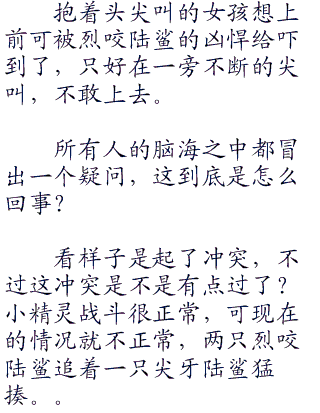 抱着头尖叫的女孩想上
前可被烈咬陆鲨的凶悍给吓
到了，只好在一旁不断的尖
叫，不敢上去。
所有人的脑海之中都冒
出一个疑问，这到底是怎么
回事？
看样子是起了冲突，不
过这冲突是不是有点过了？
小精灵战斗很正常，可现在
的情况就不正常，两只烈咬
陆鲨追着一只尖牙陆鲨猛
揍。。